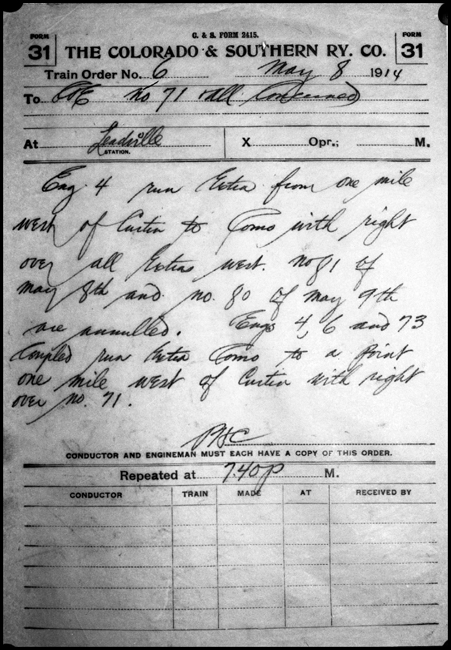 C. & S. FORM 2415.
FORM 31 THE COLORADO & SOUTHERN RY. CO. FORM 31
Train Order No. 6 May 8 1914
To C&E No 71 & all Concerned
At Leadville X Opr.; M.
STATION.
Eng. 4 run Extra from one mile
west of Curtin to Como with right
over all Extras west. No 81 of
May 8th and no. 80 of May 9th
are annulled. Engs 4, 6 and 73
Coupled run Extra Como to a point
one mile west of Curtin with right
over no. 71.
CONDUCTOR AND ENGINEMAN MUST EACH HAVE A COPY OF THIS ORDER.
Repeated at 7.40 p M.
CONDUCTOR TRAIN MADE AT RECEIVED BY